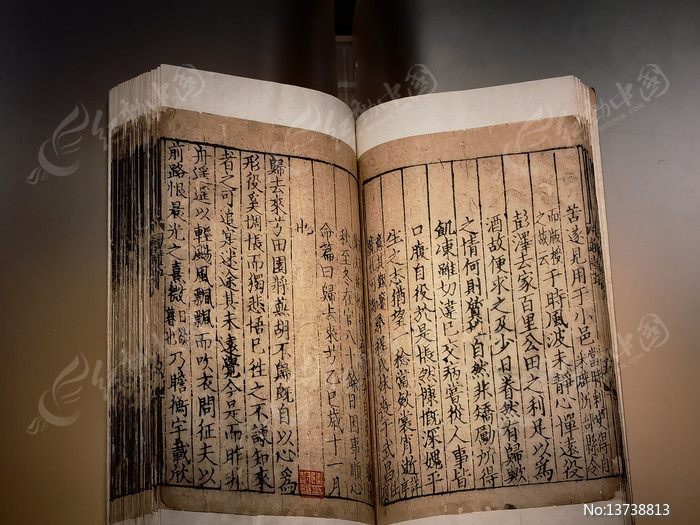 苦遂見用于小邑
之故云于時風波未靜心憚遠役
彭澤去家百里公田之利足以為
酒故便求之及少日眷然有歸歟
之情何則質性自然非矯勵所得
飢凍雖切違已交病嘗從人事皆
口腹自役於是悵然慷慨深媿平
生之志猶望一稔當斂裳宵逝
武昌
秋至冬在官八十餘日因事順心
命篇曰歸去來兮乙巳歲十一月
也
歸去來兮田園將蕪胡不歸既自以心為
形役奚惆悵而獨悲悟已往之不諫知來
者之可追寔迷途其未遠覺今是而昨非
舟遥遥以輕颺風飄飄而吹衣問征夫以
前路恨晨光之熹微乃瞻衡宇載欣
No:13738813